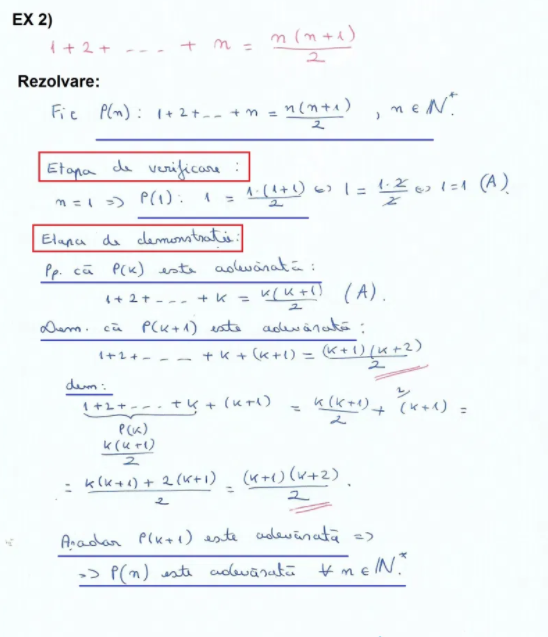 EX 2)
1+2+ --- + n = n(n+1)/2
Rezolvare:
Fie P(n): 1+2+..+n = n(n+1)/2 , n ∈ ℕ*.
Etapa de verificare :
n=1 => P(1): 1 = 1·(1+1)/2 <=> 1 = 1·2/2 <=> 1=1 (A)
Etapa de demonstratie:
Pp. că P(k) este adevărată :
1+2+ --- + k = k(k+1)/2 (A).
Dem. că P(k+1) este adevărată :
1+2+ --- + k + (k+1) = (k+1)(k+2)/2
dem:
1+2+ --- +k + (k+1) = k(k+1)/2 + ²⁾(k+1) =
P(k)
k(k+1)/2
= k(k+1) + 2(k+1)/2 = (k+1)(k+2)/2 .
Așadar P(k+1) este adevărată =>
=> P(n) este adevărată ∀ n ∈ ℕ*.